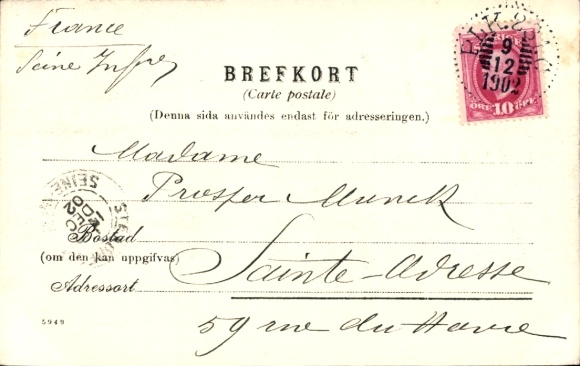 France
Seine Infre
PLK. 2
9
12
1902
ÖRE 10 ÖRE
BREFKORT
(Carte postale)
(Denna sida användes endast för adresseringen.)
Madame
Prosper Munck
STE
DEC
02
SEINE
Bostad
(om den kan uppgifvas)
Sainte-Adresse
Adressort
59 rue du Havre
5949